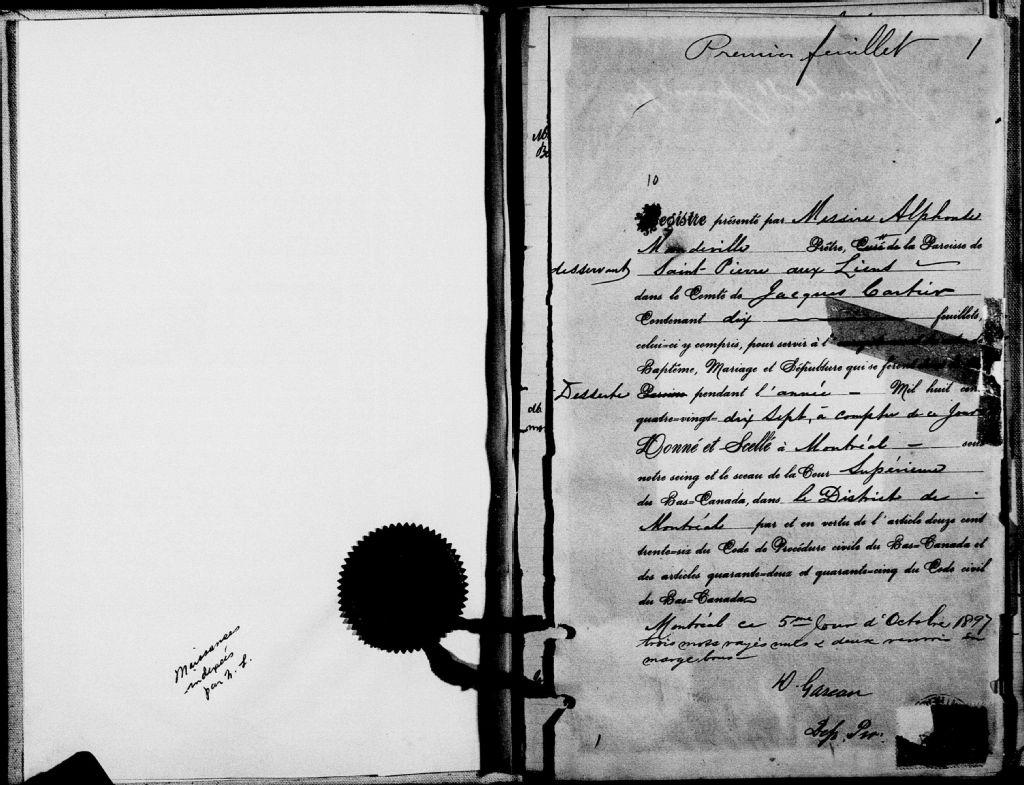 Naissances
indexés
par N. L.
Premier feuillet 1
10
Registre présenté par Messire Alphonse
Mandeville Prêtre, Curé de la Paroisse de
desservant Saint-Pierre aux Liens
dans le Comté de Jacques Cartier
Contenant dix feuillets,
celui-ci y compris, pour servir à l'
Baptême, Mariage et Sépulture qui se feront
Desserte Paroisse pendant l'année - Mil huit cent
quatre-vingt-dix sept, à compter de ce jour
Donné et Scellé à Montréal - sous
notre seing et le sceau de la Cour Supérieure
du Bas-Canada, dans le District de
Montréal par et en vertu de l'article douze cent
trente-six du Code de Procédure civile du Bas-Canada et
des articles quarante-deux et quarante-cinq du Code civil
du Bas-Canada
Montréal ce 5me jour d'Octobre 1897
trois mots rayés nuls & deux renvois en
marge bons
Gareau
Dep. Pro.